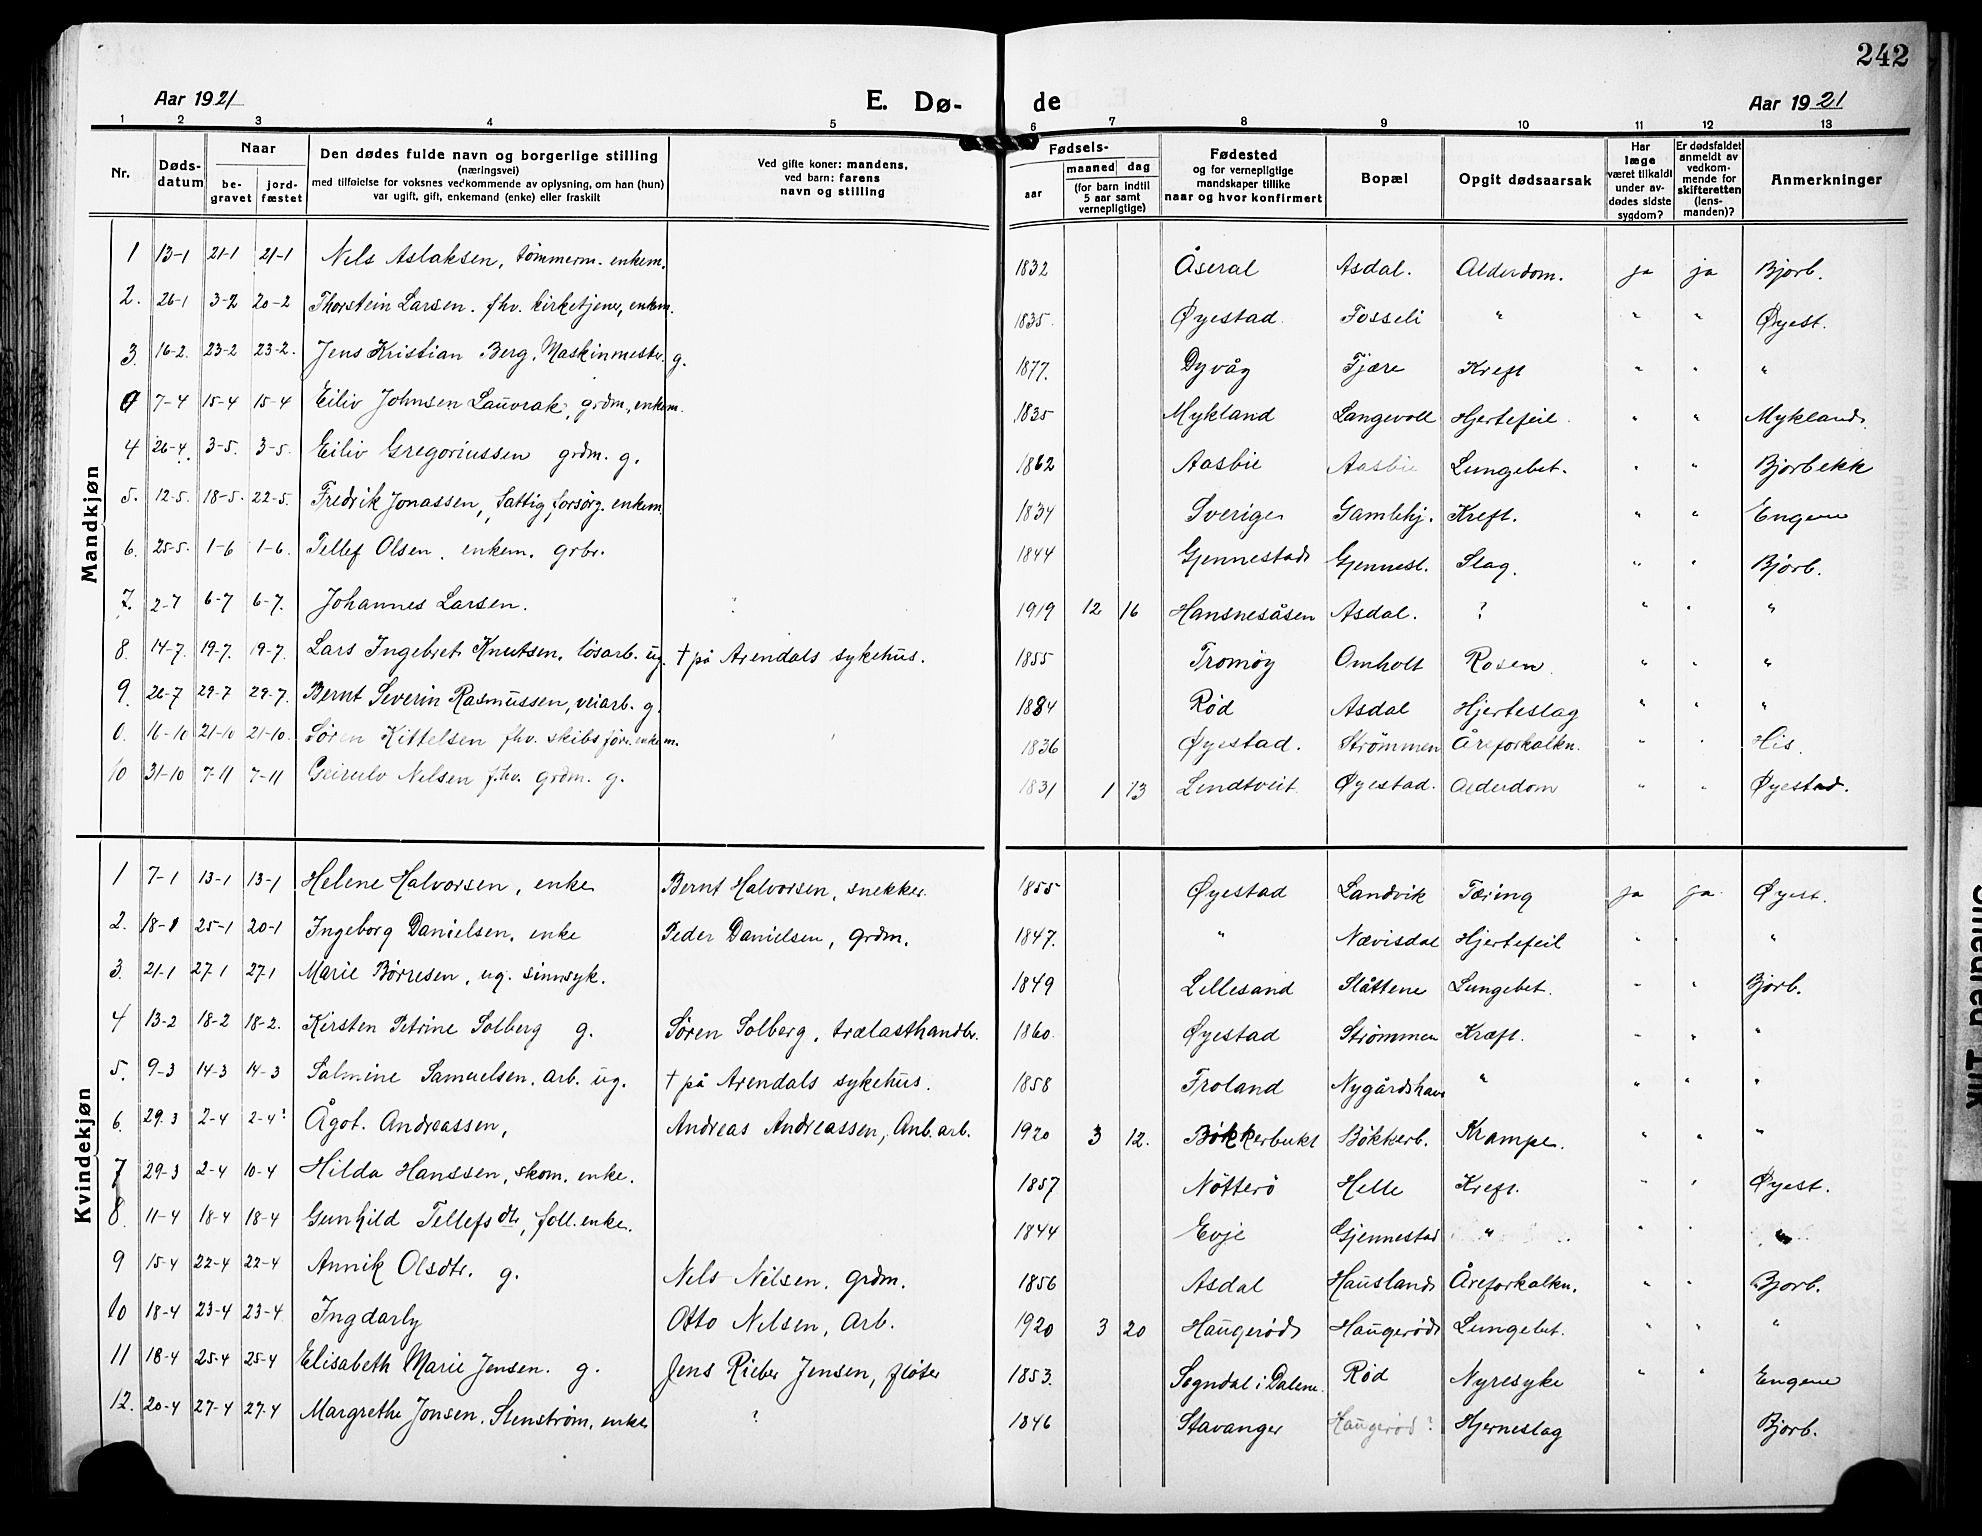 242
Aar 1921 E. Dø- de Aar 1921
1 2 3 4 5 6 7 8 9 10 11 12 13
Nr. Døds-datum Naar be-gravet jord-fæstet Den dødes fulde navn og borgerlige stilling (næringsvei) med tilføielse for voksnes vedkommende av oplysning, om han (hun) var ugift, gift, enkemand (enke) eller fraskilt Ved gifte koner: mandens, ved barn: farens navn og stilling Fødsels- aar maaned dag (for barn indtil 5 aar samt vernepligtige) Fødested og for vernepligtige mandskaper tillike naar og hvor konfirmert Bopæl Opgit dødsaarsak Har læge været tilkaldt under av-dødes sidste sygdom? Er dødsfaldet anmeldt av vedkom-mende for skifteretten (lens-manden)? Anmerkninger
Mandkjøn
1 13-1 21-1 21-1 Nels Aslaksen, tømmerm. enkem. 1832 Åseral Asdal. Alderdom. ja ja Bjorb.
2. 26-1 3-2 20-2 Thorstein Larsen. fhv. kirketjener, enkem. 1835. Øyestad. Fosseli " " " Øyest.
3. 16-2. 23-2 23-2. Jens Kristian Berg. Maskinmester. g. 1877. Dyvåg Fjære Kreft " " "
0 7-4 15-4 15-4 Eiliv Johnsen Lauvrak, grdm., enkem. 1835 Mykland Langevoll Hjertefeil. " " Mykland.
4 26-4. 3-5. 3-5. Eiliv Gregoriussen grdm. g. 1862 Aasbie Aasbie Lungebet. " " Bjorbekk
5. 12-5. 18-5. 22-5. Fredrik Jonassen, fattig forsørg. enkem. 1834 Sverige Gamlehj. Kreft. " " Engene
6. 25-5. 1-6 1-6. Tellef Olsen. enkem. grbr. 1844 Gjennestad Gjennest. Slag. " " Bjorb.
7. 2-7 6-7 6-7. Johannes Larsen. ? 1919 12 16 Hansnesåsen Asdal. ? " " "
8. 14-7. 19-7. 19-7. Lars Ingebret Knutsen, løsarb. ug. † på Arendals sykehus. 1855 Tromøy Omholt Rosen. " " "
9. 26-7 29-7 29-7. Bernt Severin Rasmussen, veiarb. g. 1884 Rød Asdal Hjerteslag " " "
0. 16-10 21-10 21-10. Søren Kittelsen fhv. skibsfører. enkem. 1836 Øyestad. Strømmen Åreforkalkn. " " His.
10 31-10 7-11 7-11 Geirulv Nelsen fhv. grdm. g. 1831 1 13 Lindtveit Øyestad. Alderdom " " Øyestad.
Kvindekjøn
1 7-1 13-1 13-1 Helene Halvorsen, enke Bernt Halvorsen, snekker. 1855 Øyestad Landvik Tæring ja ja Øyest.
2. 18-1 25-1 20-1 Ingeborg Danielsen. enke Peder Danielsen, grdm. 1847. " Nævisdal Hjertefeil " " "
3. 21-1 27-1 27-1 Marie Børresen, ug. sinnsyk. 1849 Lillesand Slåttene Lungebet. " " Bjorb.
4 13-2 18-2 18-2. Kirsten Petrine Solberg g. Søren Solberg, trælasthandler. 1860. Øyestad Strømmen Kræft. " " "
5. 9-3 14-3 14-3 Salmine Samuelsen. arb. ug. † på Arendals sykehus. 1858 Froland Nygårdshave " " " "
6. 29.3 2-4 2-4? Ågot. Andreassen, Andreas Andreassen, Anb. arb. 1920 3 12. Bøkkerbukt Bøkkerb. Krampe. " " "
7 29-3 2-4 10-4 Hilda Hanssen, skom. enke. 1857 Nötterö Helle Kreft. " " Øyest.
8. 11-4 18-4 18-4 Gunhild Tellefsdtr, foll. enke. 1844 Evje Gjennestad " " " "
9 15-4 22-4 22-4 Annik Olsdtr. g. Nels Nilsen, grdm. 1856 Asdal Hausland Åreforkalkn. " " Bjorb.
10 18-4 23-4 23-4 Ingdarly Otto Nelsen, Arb. 1920 3 20 Haugerød Haugerød Lungebet. " " "
11 18-4 25-4 25-4 Elisabeth Marie Jensen. g. Jens Rieber Jensen, fløter 1853. Sogndal i Dalene. Rød Nyresyke " " Engene
12. 20-4 27-4 27-4 Margrethe Jonsen. Stenstrøm, enke ? 1846 Stavanger Haugerød? Hjerneslag " " Bjorb.